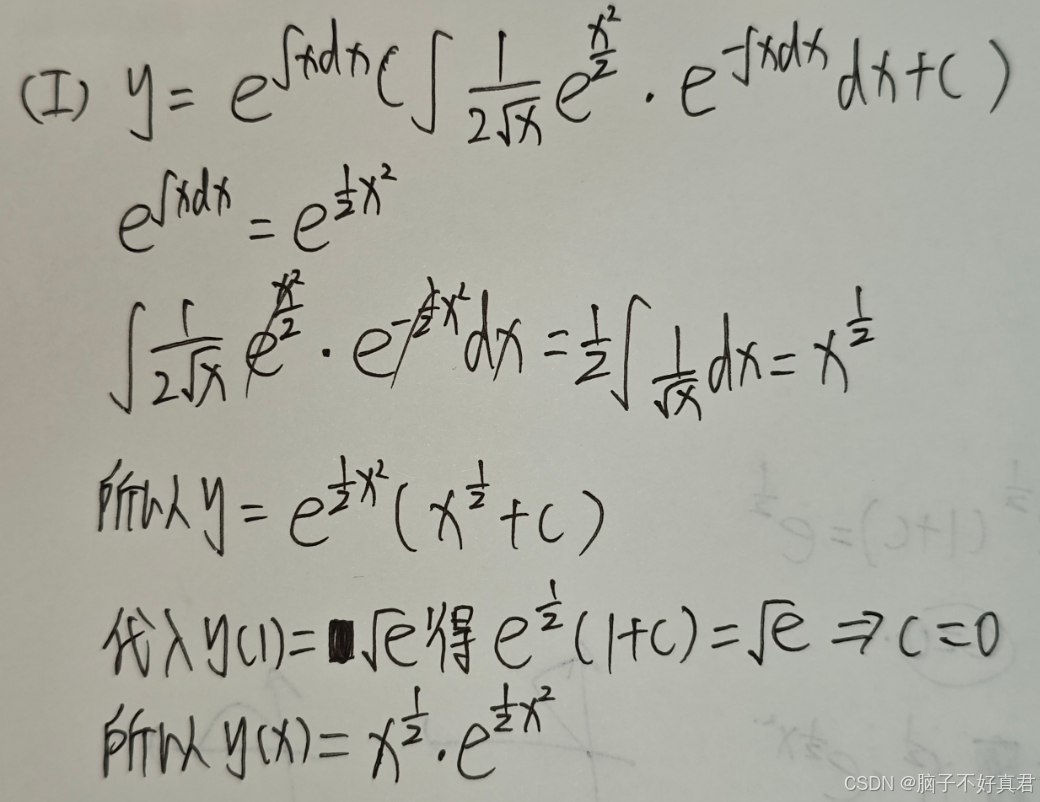 (I) y = e^{∫xdx}(∫ \frac{1}{2\sqrt{x}} e^{\frac{x^2}{2}} · e^{-∫xdx} dx + C)
e^{∫xdx} = e^{\frac{1}{2}x^2}
∫ \frac{1}{2\sqrt{x}} e^{\frac{x^2}{2}} · e^{-\frac{1}{2}x^2} dx = \frac{1}{2} ∫ \frac{1}{\sqrt{x}} dx = x^{\frac{1}{2}}
所以 y = e^{\frac{1}{2}x^2}(x^{\frac{1}{2}} + C)
代入 y(1) = \sqrt{e} 得 e^{\frac{1}{2}}(1+C) = \sqrt{e} ⇒ C = 0
所以 y(x) = x^{\frac{1}{2}} · e^{\frac{1}{2}x^2}
CSDN @脑子不好真君